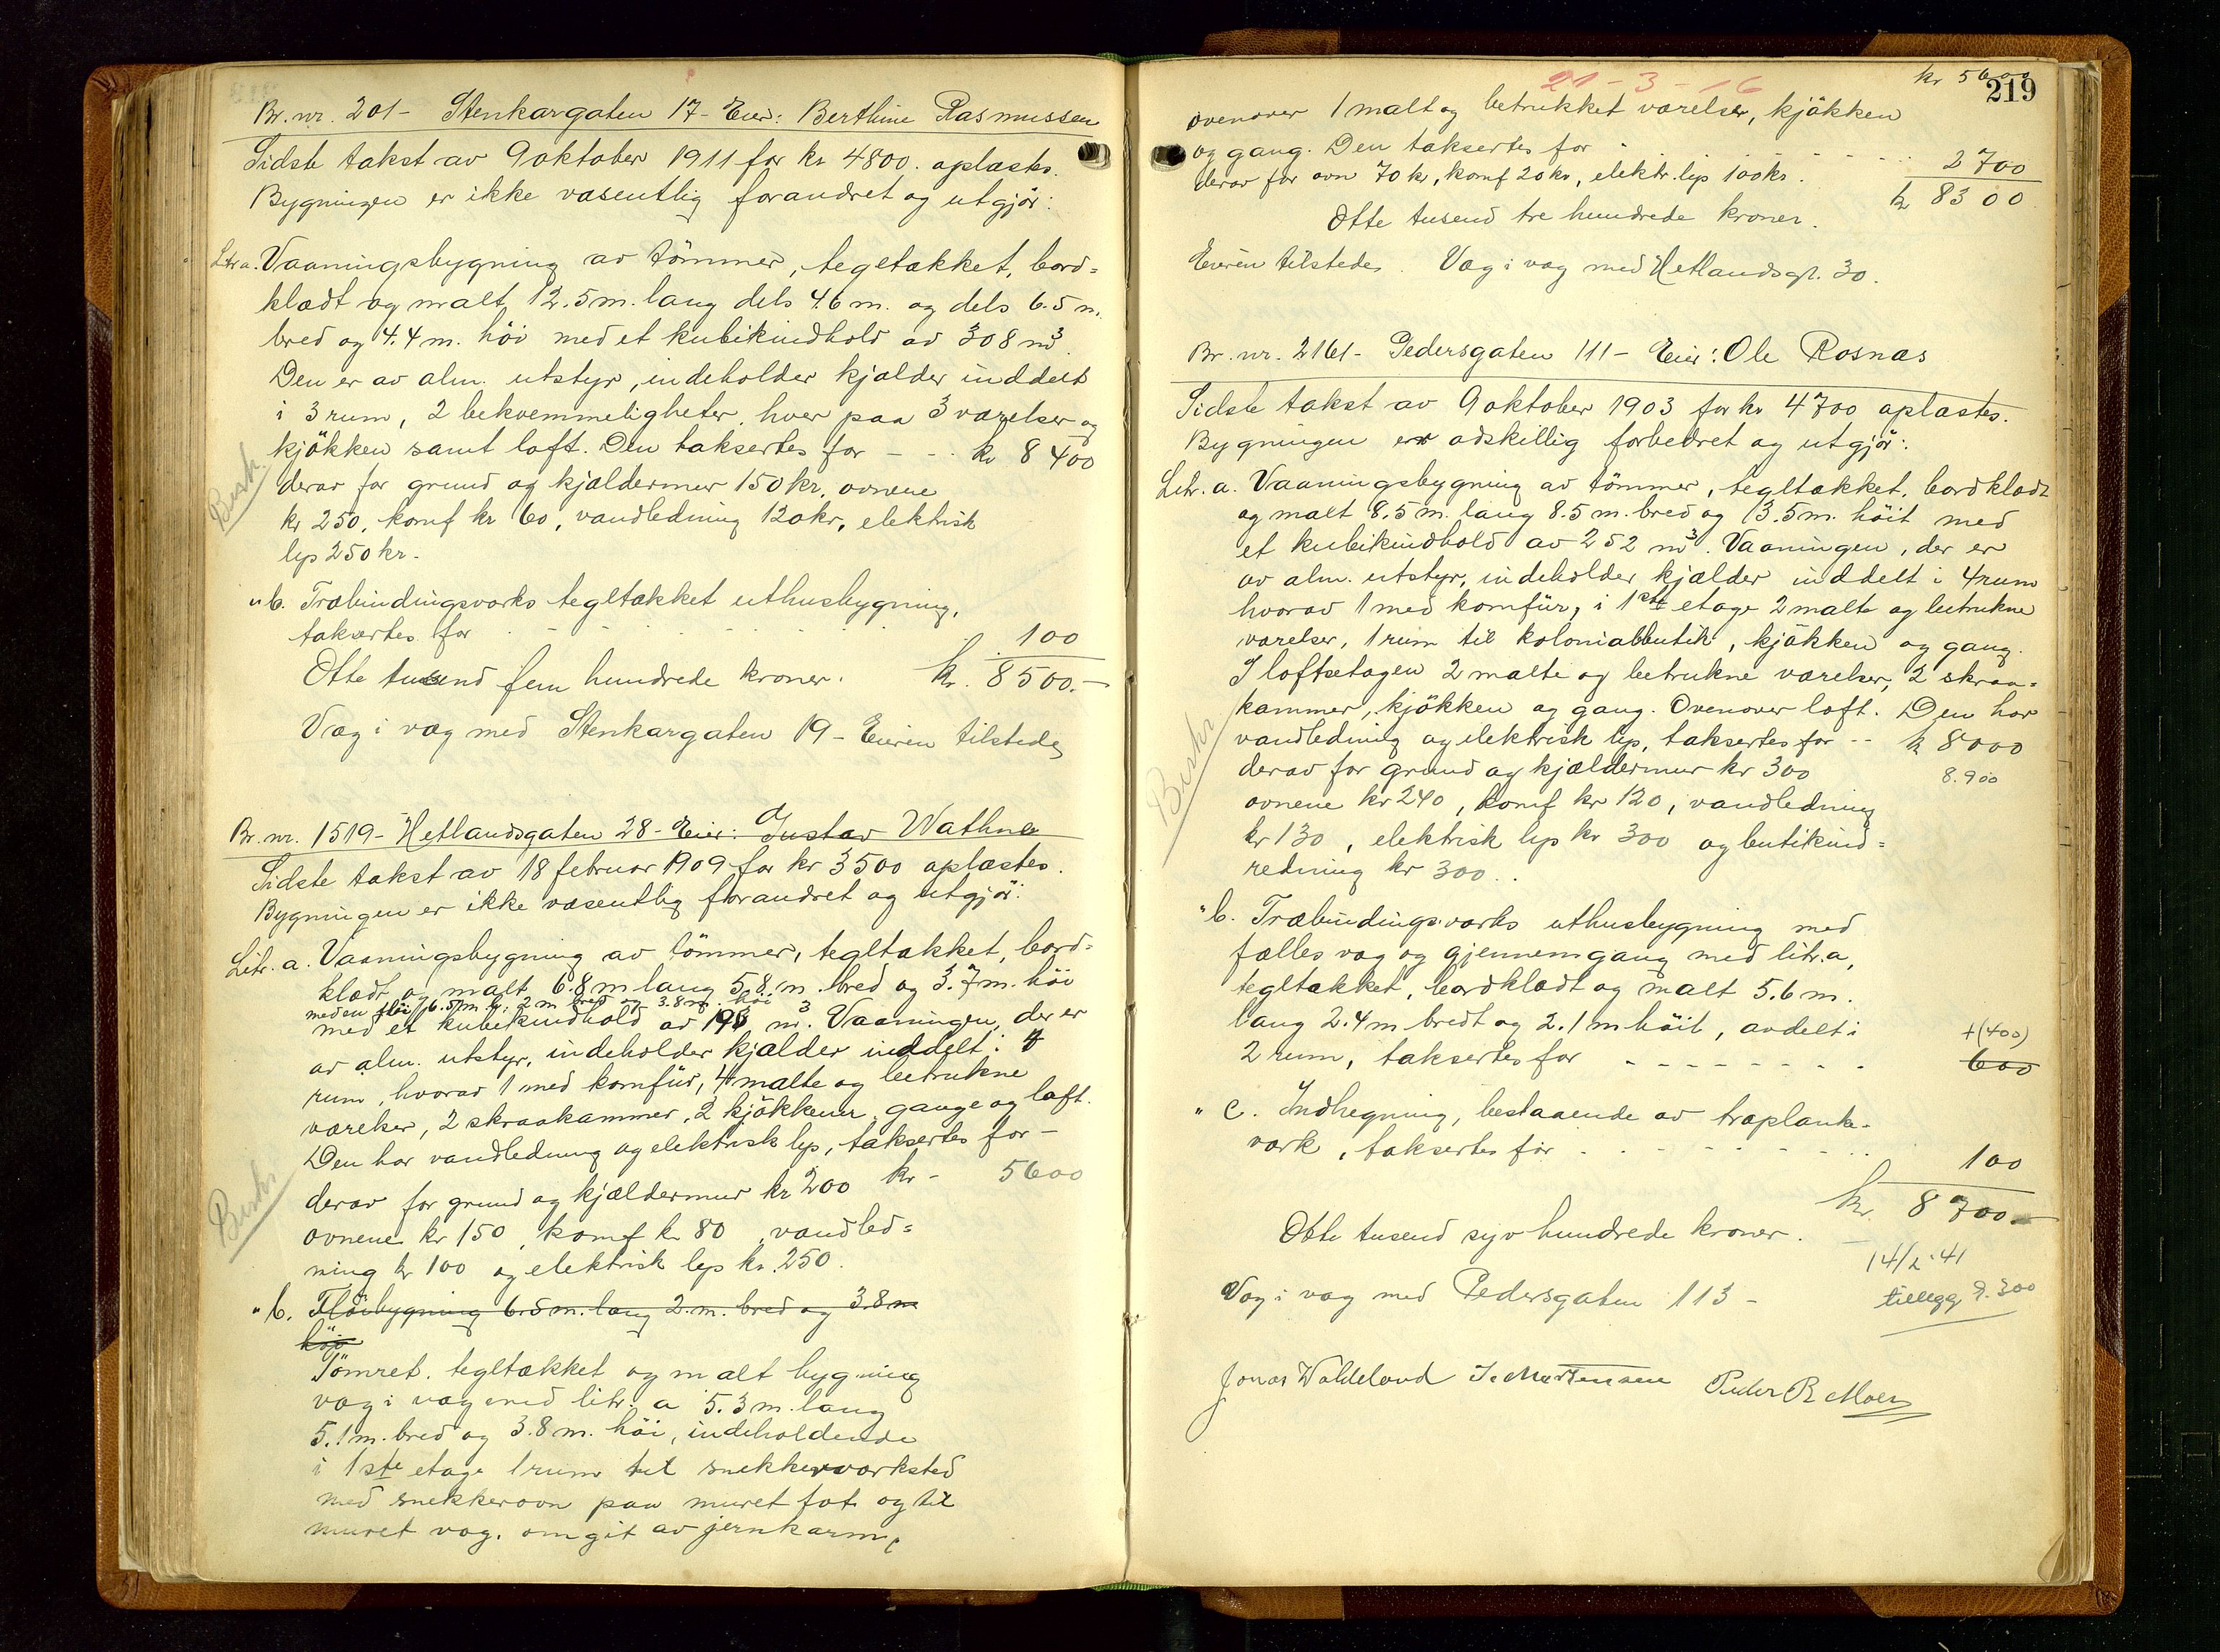 Br. nr. 201 - Stenkargaten 17 - Eier: Berthine Rasmussen
Sidste takst av 9 oktober 1911 for kr 4800. oplæstes.
Bygningen er ikke væsentlig forandret og utgjör:
Litr a. Vaaningsbygning av tömmer, tegltækket, bord=
klædt og malt, 12.5 m. lang dels 4.6 m. og dels 6.5 m.
bred og 4.4 m. höi med et kubikindhold av 308 m³.
Den er av alm. utstyr, indeholder kjælder inddelt
i 3 rum, 2 bekvemmeligheter, hver paa 3 værelser og
kjökken samt loft. Den taksertes for - - - kr 8400
derav for grund og kjældermur 150 kr. ovnene
kr 250, komf kr 60, vandledning 120 kr, elektrisk
lys 250 kr.
Besk.
" b. Træbindingsværks tegltækket uthusbygning,
taksertes for - - - - - - 100
Otte tusend fem hundrede kroner. kr. 8500.-
Væg i væg med Stenkargaten 19 - Eieren tilstede
Br. nr. 1519 - Hetlandsgaten 28 - Eier: Gustav Wathne
Sidste takst av 18 februar 1909 for kr 3500 oplæstes.
Bygningen er ikke væsentlig forandret og utgjör:
Litr. a. Vaaningsbygning av tömmer, tegltækket, bord=
klædt og malt 6.8 m lang 5.8 m. bred og 3.7 m. höi
med en flöi 6.5 m lg. 2 m bred og 3.8 m. höi
med et kubikindhold av 193 m³. Vaaningen, der er
av alm. utstyr, indeholder kjælder inddelt i 4
rum, hvorav 1 med komfür, 4 malte og betrukne
værelser, 2 skraakammer, 2 kjökkener, gange og loft.
Den har vandledning og elektrisk lys, taksertes for -
kr - 5600
derav for grund og kjældermur kr 200
ovnene kr 150, komf kr 80, vandled=
ning kr 100 og elektrisk lys kr. 250.
Beskr
" b. Flöibygning 6.5 m. lang 2. m. bred og 3.8 m
höi
Tömret, tegltækket og malt bygning
væg i væg med litr. a 5.3 m. lang
5.1 m. bred og 3.8 m. höi, indeholdende
i 1ste etage 1 rum til snekkerværksted
med snekkerovn paa muret fot og til
muret væg, omgit av jernkarm,
21-3-16
kr 5600
219
ovenover 1 malt og betrukket værelse, kjökken
og gang. Den taksertes for - - - - - 2700
derav for ovn 70 kr, komf 20 kr, elektr. lys 100 kr.
kr 8300
Otte tusend tre hundrede kroner.
Eieren tilstede. Væg i væg med Hetlandsgt. 30.
Br. nr. 2161 - Pedersgaten 111 - Eier: Ole Rosnæs
Sidste takst av 9 oktober 1903 for kr 4700 oplæstes.
Bygningen er adskillig forbedret og utgjör:
Litr. a. Vaaningsbygning av tömmer, tegltækket, bordklædt
og malt 8.5 m. lang 8.5 m. bred og 3.5 m. höit med
et kubikindhold av 252 m³. Vaaningen, der er
av alm. utstyr, indeholder kjælder inddelt i 4 rum
hvorav 1 med komfür, i 1ste etage 2 malte og betrukne
værelser, 1 rum til kolonialbutik, kjökken og gang.
I loftsetagen 2 malte og betrukne værelser, 2 skraa=
kammer, kjökken og gang. Ovenover loft. Den har
vandledning og elektrisk lys, taksertes for - - kr 8000
derav for grund og kjældermur kr 300
8.900
ovnene kr 240, komf kr 120, vandledning
kr 130, elektrisk lys kr 300 og butikind=
redning kr 300.
Beskr
" b. Træbindingsværks uthusbygning med
fælles væg og gjennemgang med litr. a,
tegltækket, bordklædt og malt 5.6 m.
lang 2.4 m bredt og 2.1 m höit, avdelt i
+(400)
2 rum, taksertes for - - - - - - - 600
" c. Indhegning, bestaaende av træplanke-
værk, taksertes for - - - - - - 100
kr. 8700.-
Otte tusend syv hundrede kroner.
14/2-41
Væg i væg med Pedersgaten 113 -
tillegg 300
Jonas Waldeland I. Mortensen Peder R Moen